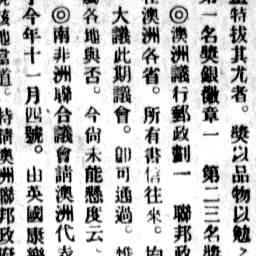 特拔其尤者。獎以品物以勉
一名獎銀徽章一　第二三名獎
◎澳洲議行郵政劃一　聯邦政
澳洲各省。所有書信往來。均
大議此期議會。卽可通過。惟
各地與否。今尙未能懸度云。
◎南非洲聯合議會請澳洲代表
今年十一月四號。由英國康樂
該地當道。特請澳洲聯邦政府